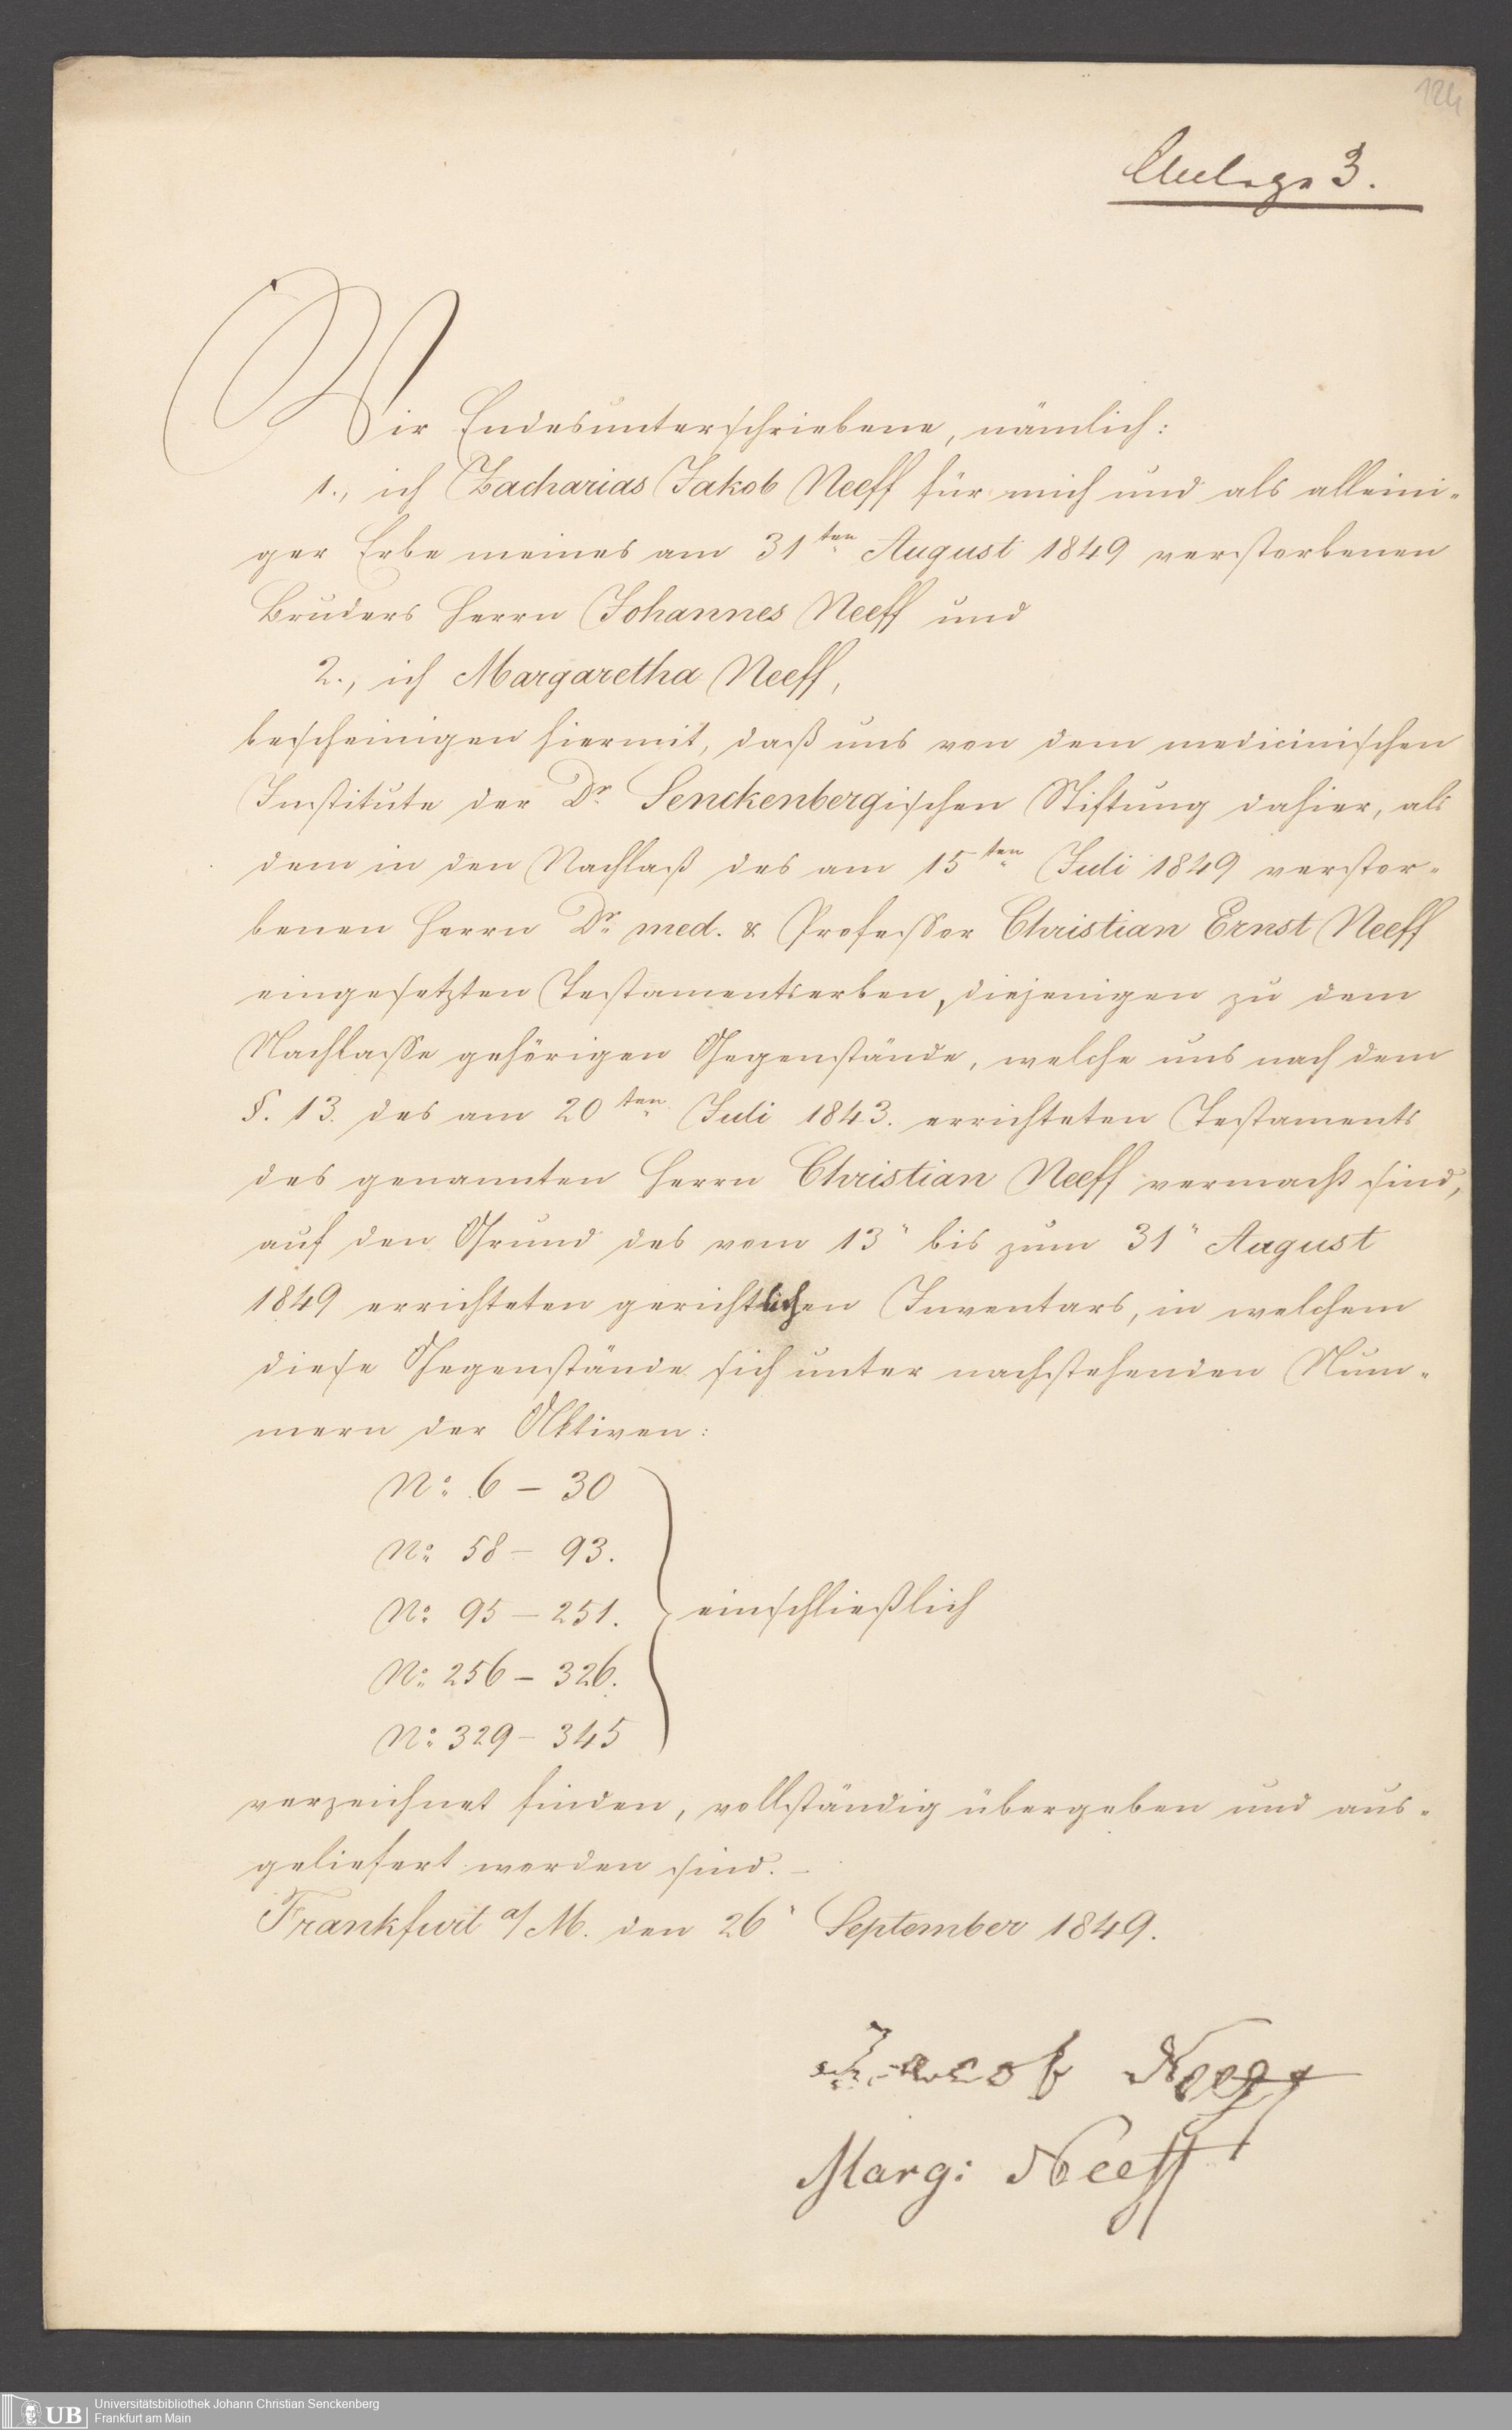 124
Anlage 3.
Wir Endesunterschriebene, nämlich:
1., ich Zacharias Jakob Neeff für mich und als alleini-
ger Erbe meines am 31ten August 1849 verstorbenen
Bruders Herrn Johannes Neeff und
2., ich Margaretha Neeff,
bescheinigen hiermit, daß uns von dem medicinischen
Institute der Dr. Senckenbergischen Stiftung dahier, als
dem in den Nachlaß des am 15ten Juli 1849 verstor-
benen Herrn Dr. med. & Professor Christian Ernst Neeff
eingesetzten Testamentserben, diejenigen zu dem
Nachlasse gehörigen Gegenstände, welche uns nach dem
§. 13. des am 20ten Juli 1843. errichteten Testaments
des genannten Herrn Christian Neeff vermacht sind,
auf den Grund des vom 13" bis zum 31" August
1849 errichteten gerichtlichen Inventars, in welchem
diese Gegenstände sich unter nachstehenden Num-
mern der Aktiven:
No: 6 – 30
No: 58 – 93.
No: 95 – 251. einschließlich
No: 256 – 326.
No: 329 – 345
verzeichnet finden, vollständig übergeben und aus-
geliefert worden sind. –
Frankfurt a/M. den 26" September 1849.
Jacob Neeff
Marg: Neeff
UB Universitätsbibliothek Johann Christian Senckenberg
Frankfurt am Main